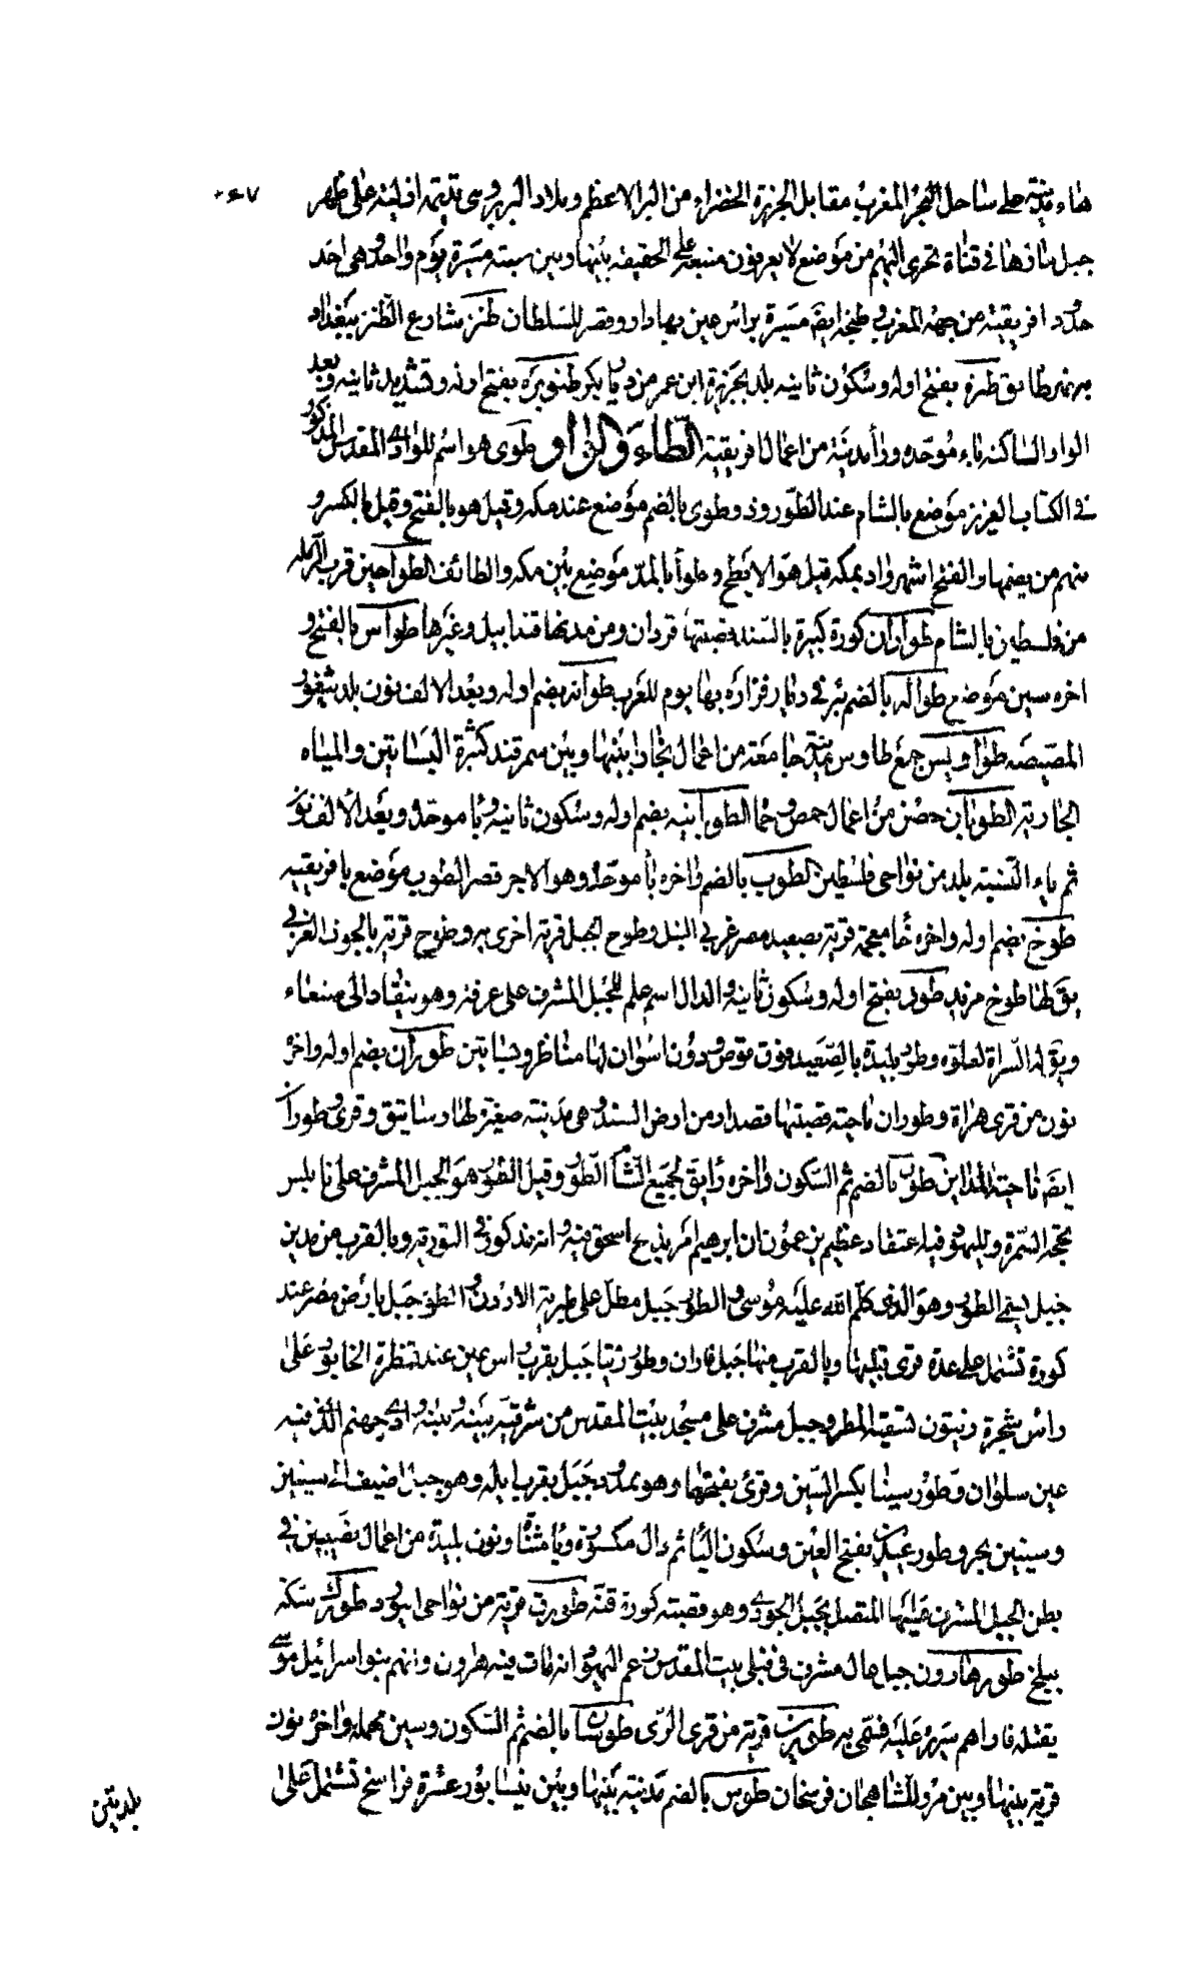 هاء مدينة على ساحل البحر المغرب مقابل الجزيرة الخضراء من البر الاعظم وبلاد البربر وهى قديمة على ظهر
جبل ماؤها فى قناة تجرى اليهم من موضع لا يعرفون منبعه على الحقيقة بينها وبين سبتة مسيرة يوم واحد وهى احد
حدود افريقية من جهة المغرب و طنجة ايضا مسيرة براس عين بها دار وقصر للسلطان طنز شارع الطنز ببغداد
بنهر طابق طنزة بفتح اوله وسكون ثانيه بلد بجزيرة ابن عمر من ديار بكر طنوبرة بفتح اوله وتشديد ثانيه وبعد
الواو الساكنة باء موحدة وراء مدينة من اعمال افريقية الطاء والواو طوى هو اسم للوادى المقدس المذكور
فى الكتاب العزيز موضع بالشام عند الطور وذو طوى بالضم موضع عند مكة وقيل هو بالفتح وقيل بالكسر و
منهم من يضمها والفتح اشهر واد بمكة قيل هو الابطح وطواء بالمد موضع بين مكة والطائف الطواحين قرب الرملة
من فلسطين بالشام طواران كورة كبيرة بالسند قصبتها قزدان ومن مدنها قندابيل وغيرها طواس بالفتح و
اخره سين موضع طوالة بالضم بئر فى ديار فزارة بها يوم للعرب طوانة بضم اوله وبعد الالف نون بلد بثغور
المصيصة طواويس جمع طاوس مدينة جامعة من اعمال بخارا بينها وبين سمرقند كثيرة البساتين والمياه
الجارية الطوبان حصن من اعمال حمص وحما الطوبانية بضم اوله وسكون ثانيه وباء موحدة وبعد الالف نون
ثم ياء النسبة بلد من نواحى فلسطين الطوب بالضم واخره باء موحدة وهو الاجر قصر الطوب موضع بافريقية
طوخ بضم اوله واخره خاء معجمة قرية بصعيد مصر غربى النيل وطوخ الجبل قرية اخرى به وطوخ قرية بالجوف الغربى
يق لها طوخ مزيد طود بفتح اوله وسكون ثانيه والدال اسم علم للجبل المشرف على عرفة وهو ينقاد الى صنعاء
ويق له السراة لعلوه وطود بليدة بالصعيد فوق قوص ودون اسوان لها مناظر وبساتين طوران بضم اوله واخره
نون من قرى هراة وطوران ناحية قصبتها قصدار من ارض السند وهى مدينة صغيرة لها رساتيق وقرى وطوران
ايضا ناحية المداين طور بالضم ثم السكون واخره راء يق لجميع الشام الطور وقيل الطور هو الجبل المشرف على نابلس
يحجه السمرة ولليهود فيه اعتقاد عظيم يزعمون ان ابرهيم امر بذبح اسحق فيه وانه مذكور فى التورية وبالقرب من مدين
جبل يسمى الطور وهو الذى كلم الله عليه موسى و الطور جبل مطل على طبرية الاردن و الطور جبل بارض مصر عند
كورة تشتمل على عدة قرى قبليها وبالقرب منها جبل فاران وطور زيتا جبل بقرب راس عين عند قنطرة الخابور على
رأس شجرة زيتون تسقيه المطر وجبل مشرف على مسجد بيت المقدس من شرقيه بينه وبينه وادى جهنم الذى فيه
عين سلوان وطور سينا بكسر السين وقرى بفتحها وهو ممدود جبل بقرب ايلة وهو جبل اضيف الى سينين
وسينين شجر وطور عبدين بفتح العين وسكون الباء ثم دال مكسورة وياء مثناة ونون بليدة من اعمال نصيبين فى
بطن الجبل المشرف عليها المتصل بجبل الجودى وهو قصبة كورة فيه طورق قرية من نواحى ابيورد طورك سكة
ببلخ طور هارون جبل عال مشرف فى قبلى بيت المقدس زعم اليهود انه مات فيه هارون واتهم بنو اسرائيل موسى
بقتله فاراهم سريره عليه فسمى به طورين قرية من قرى الرى طوسان بالضم ثم السكون وسين مهملة واخره نون
قرية بينها وبين مرو الشاهجان فرسخان طوس بالضم مدينة بينها وبين نيسابور عشرة فراسخ تشتمل على
بلدتين